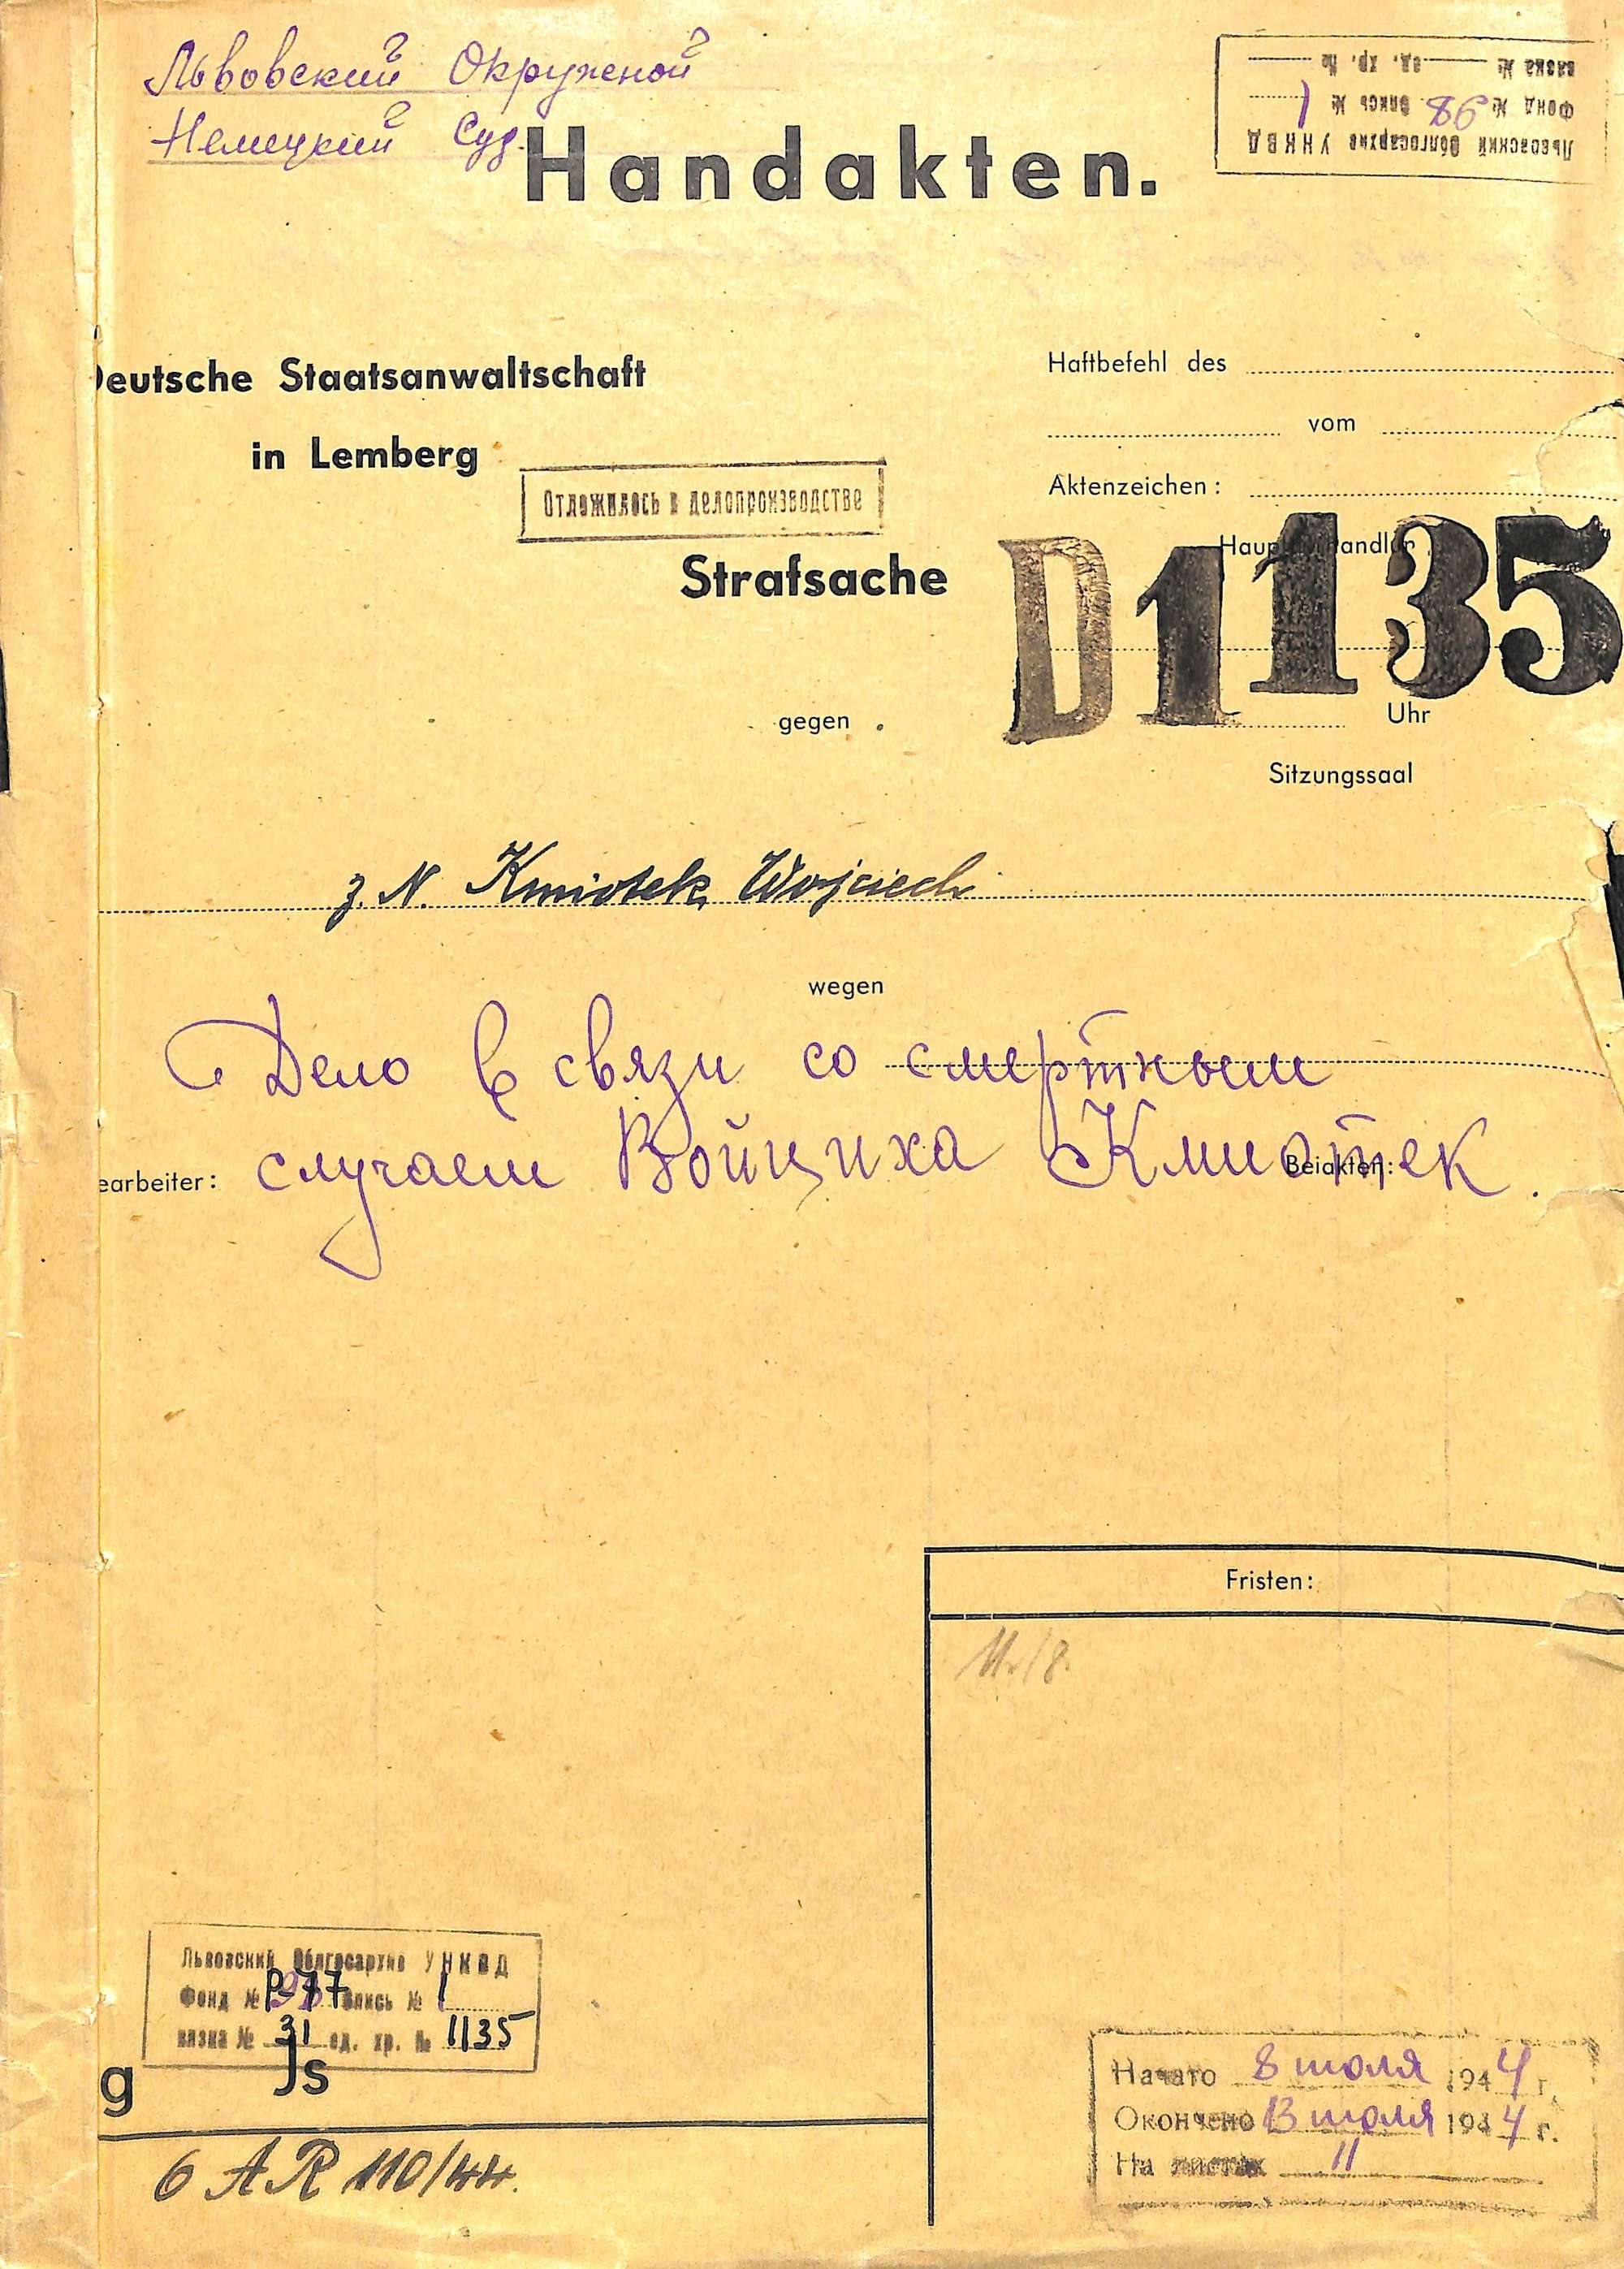 Львовский Окружной
Немецкий Суд.
Львовский Облгосархив УНКВД
Фонд № 98 опись № 1
вязка № ед. хр. №
Handakten.
Deutsche Staatsanwaltschaft
in Lemberg
Haftbefehl des
vom
Aktenzeichen:
Отложилось в делопроизводстве
Strafsache
D1135
gegen
Uhr
Sitzungssaal
z. N. Kmiotek Wojciech
wegen
Дело в связи со смертным
случаем Войциха Кмиотек.
earbeiter:
Beiakten:
Fristen:
11./8.
Львовский Облгосархив УНКВД
Фонд № Р-77 опись № 1
вязка № 31 ед. хр. № 1135
g Js
6 AR 110/44.
Начато 8 июля 1944 г.
Окончено 13 июля 1944 г.
На листах 11